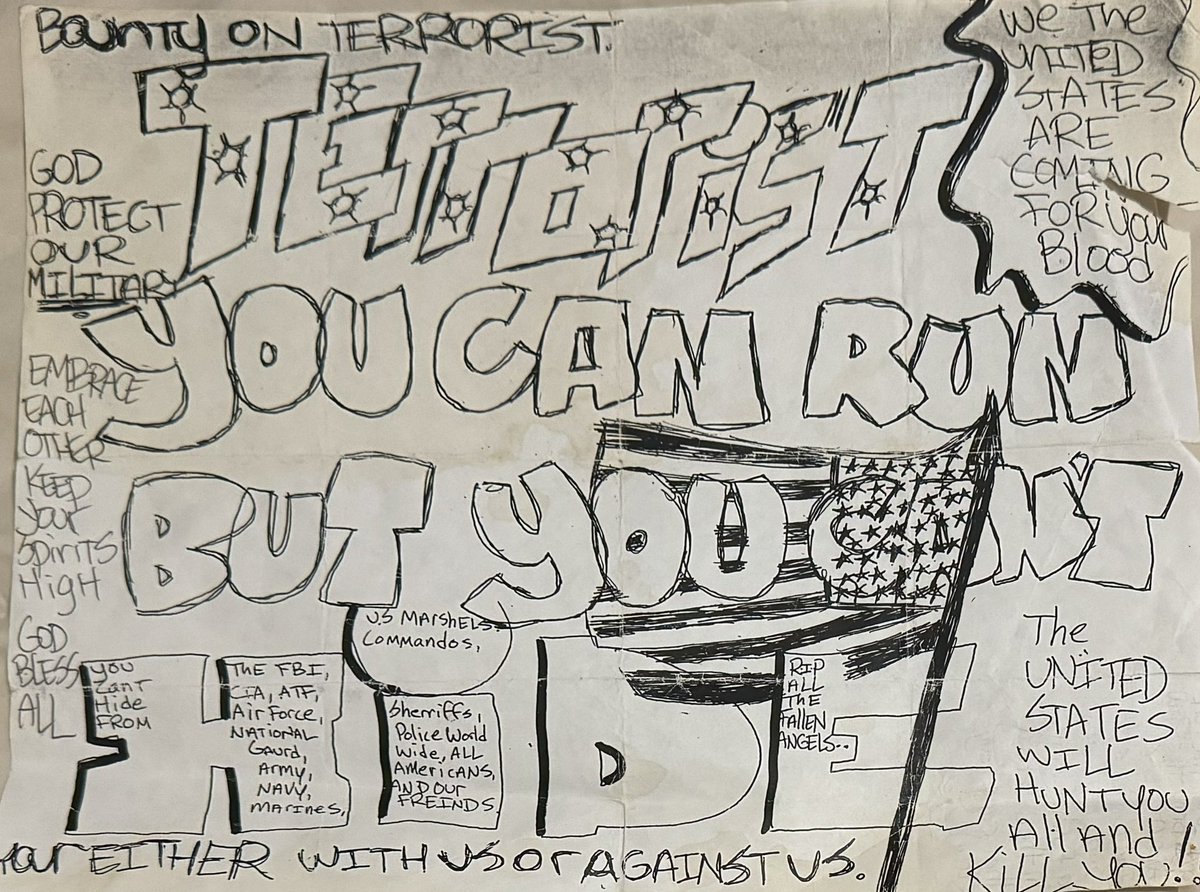 Bounty ON TERRORIST.
TERRORIST
YOU CAN RUN
BUT YOU CAN'T
HIDE
We The
UNITED
STATES
ARE
COMING
FOR your
Blood
GOD
PROTECT
OUR
MILITARY
EMBRACE
EACH
OTHER
KEEP
your
SpiriTS
HigH
GOD
BLESS
ALL
you
Cant
Hide
FROM
THE FBI,
CIA, ATF,
Air Force,
NATIONAL
Gaurd,
Army,
NAVY,
Marines,
U.S MARSHELS.
Commandos,
Sherriffs,
Police World
Wide, ALL
Americans,
AND OUR
FREINDS.
RIP
ALL
THE
FALLEN
ANGELS..
The
UNITED
STATES
WILL
HUNT YOU
All And
Kill You!!
Your EITHER WITH US Or AGAINST US.